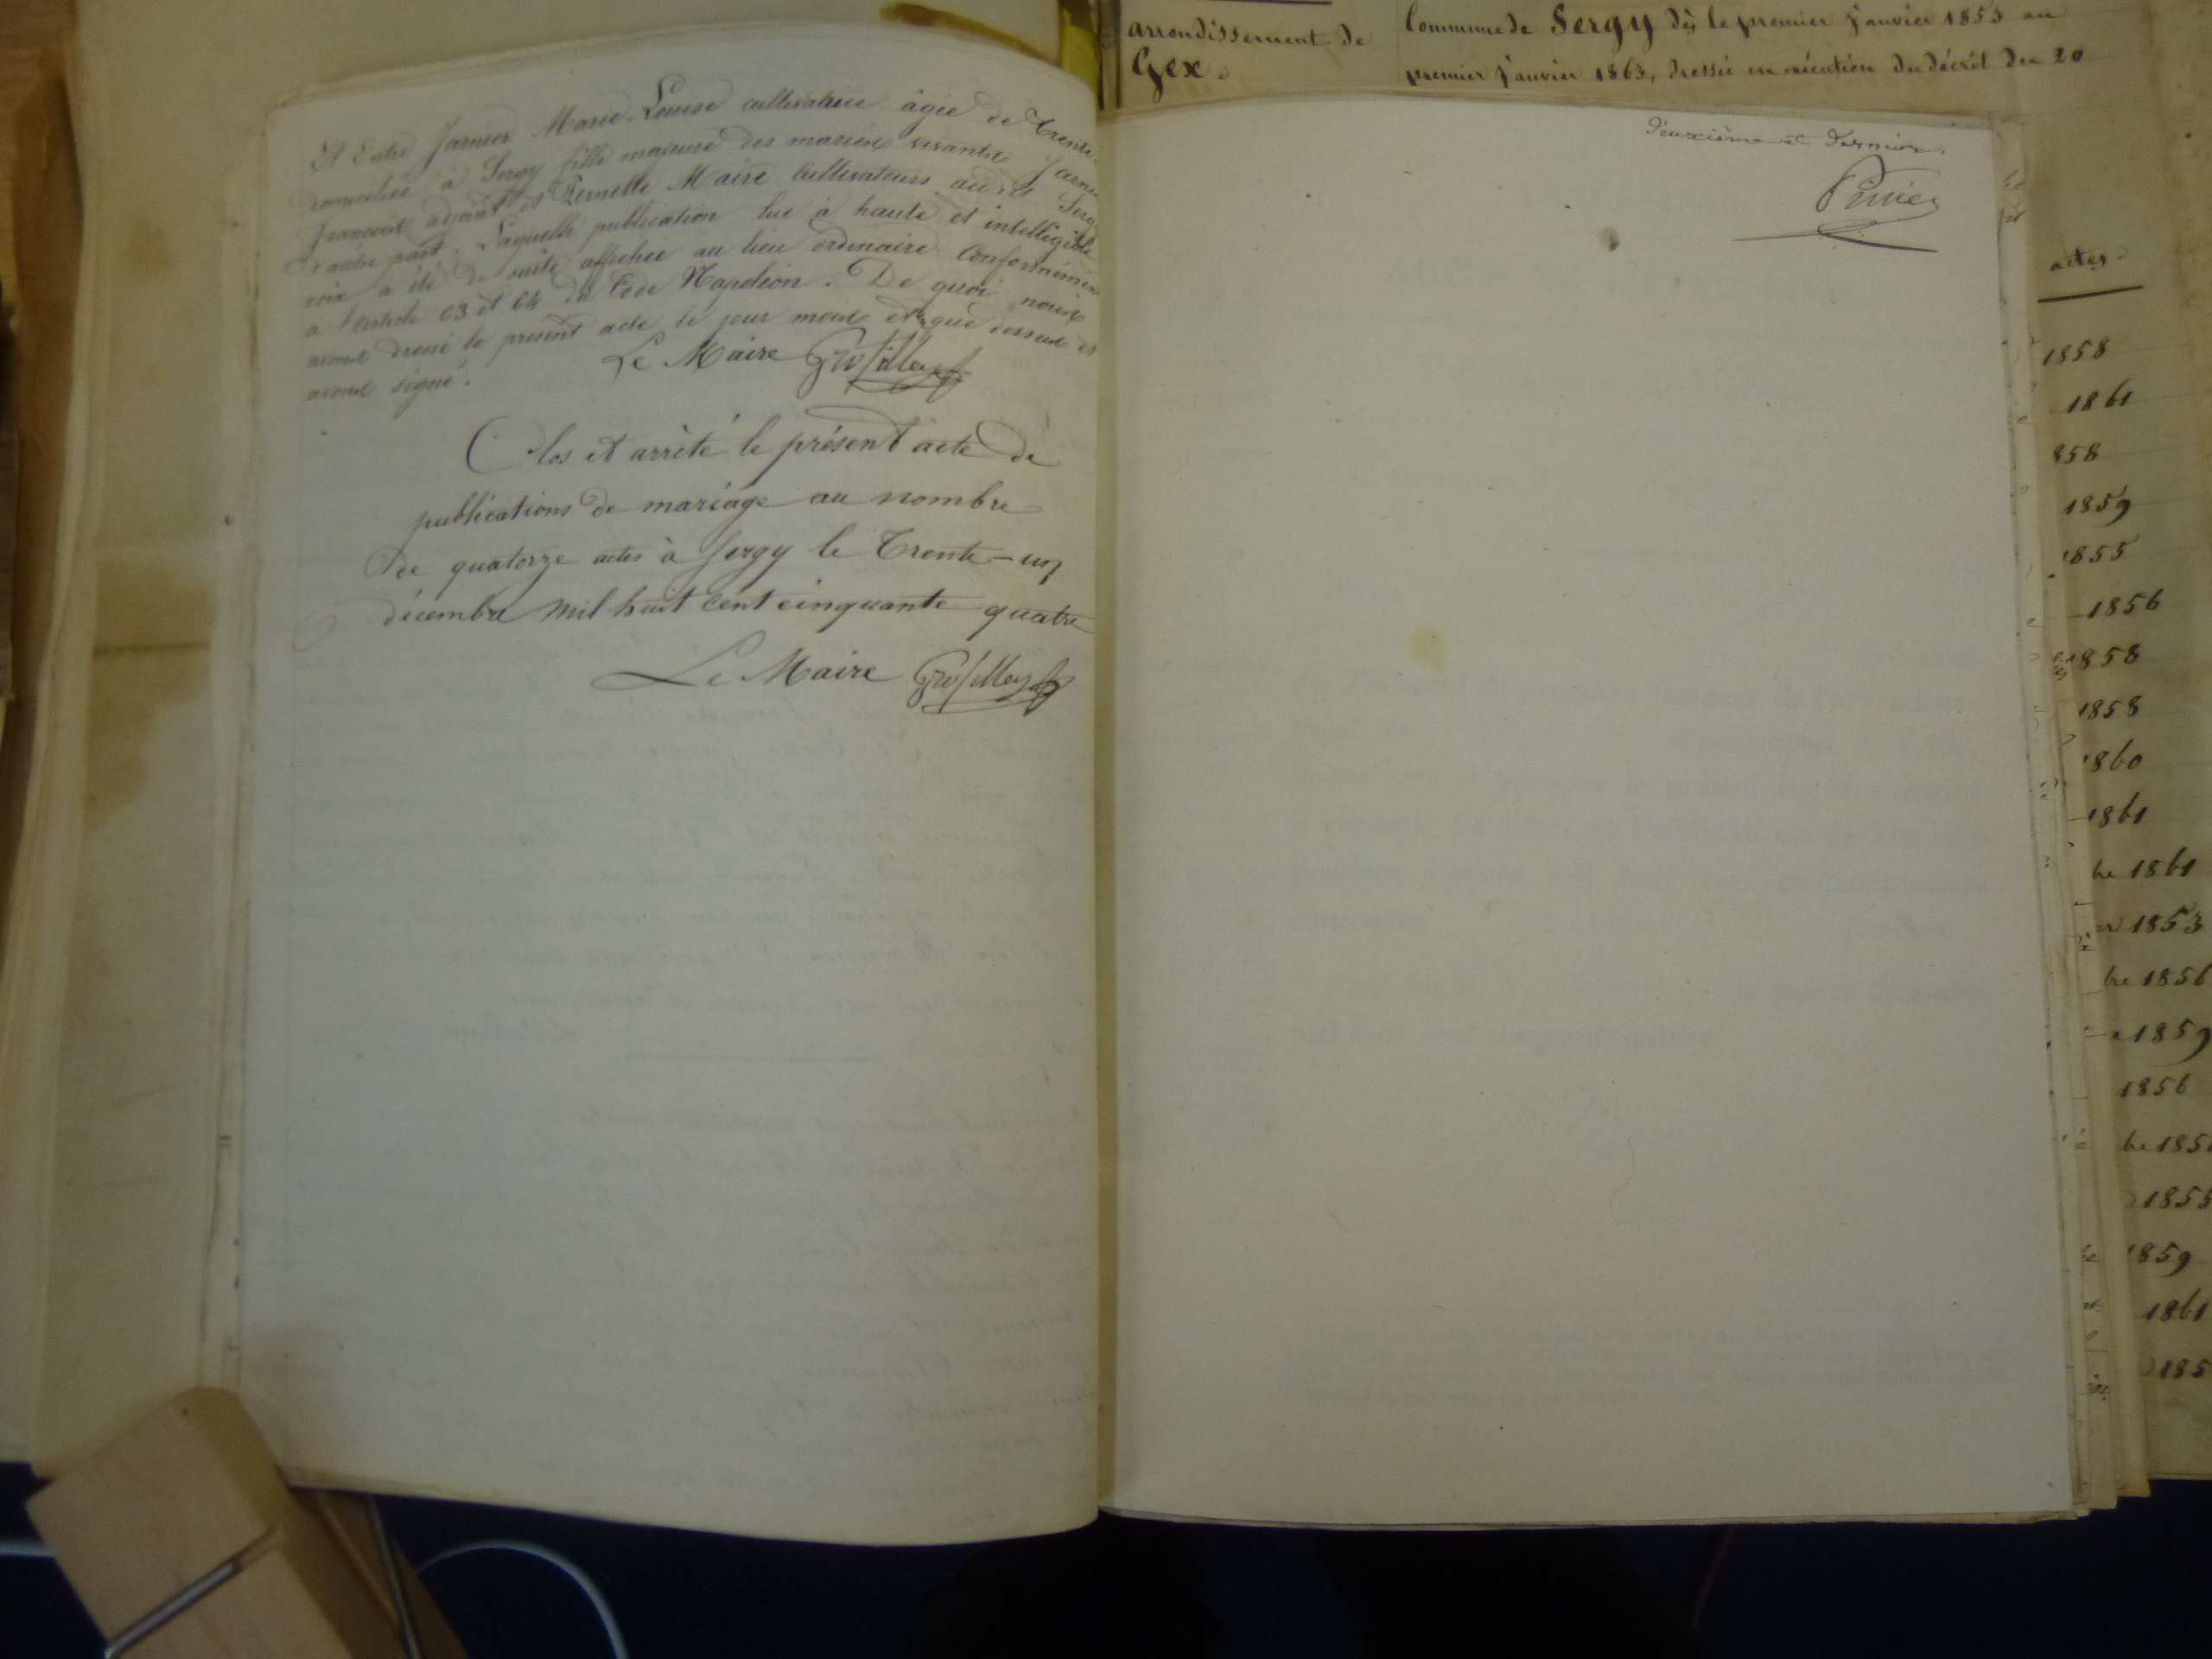 Et Entre Jarnier Marie-Louise cultivatrice âgée de Trente
domiciliée à Sergy fille majeure des mariés vivants
François et Pernette Maire Cultivateurs au dit Sergy
d'autre part. Laquelle publication lue à haute et intelligible
voix a été de suite affichée au lieu ordinaire Conformémen
a l'article 63 et 64 du Code Napoléon. De quoi nous
avons dressé le présent acte le jour mois et an que dessus et
avons signé.
Le Maire Grosfilley
Clos et arrêté le présent acte de
publications de mariage au nombre
de quatorze actes à Sergy le Trente-un
décembre mil huit cent cinquante quatre
Le Maire Grosfilley
arrondissement de
Gex.
Commune de Sergy dès le premier janvier 1853 au
premier janvier 1863, dressée en exécution du décrét du 20
deuxième et dernière.
actes.
1858
1861
858
1859
1855
1856
1858
1858
1860
1861
bre 1861
1853
bre 1856
e 1859
1856
bre 185
1855
1859
1861
185